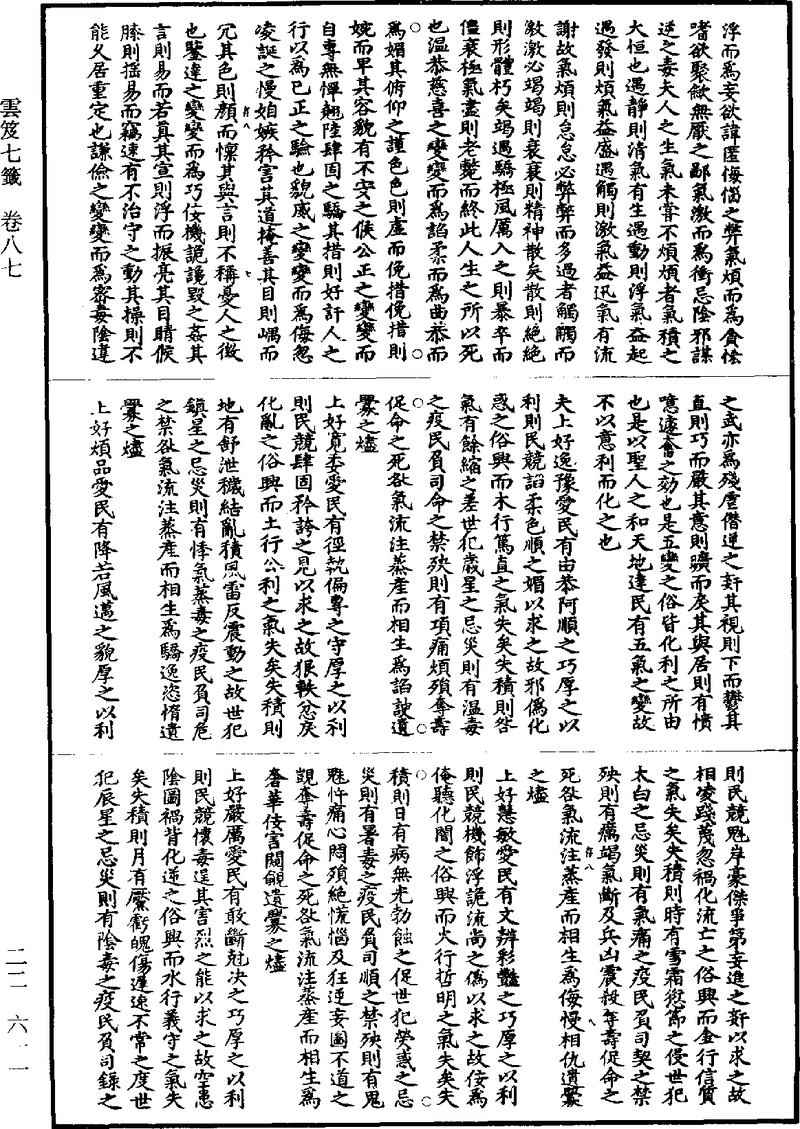 浮而為妄欲諱匿悔惱之弊氣煩而為貪恡
嗜欲聚斂無厭之鄙氣激而為衝忌陰邪謀
逆之毒夫人之生氣未常不煩煩者氣積之
大恒也遇靜則清氣有生遇動則浮氣益起
遇發則煩氣益盛遇觸則激氣益迅氣有流
謝故氣煩則怠怠必弊弊而多過者觸觸而
激激必竭竭則衰衰則精神散矣散則絕絕
則形體朽矣竭遇驕極風厲入之則暴卒而
僵衰極氣盡則老斃而終此人生之所以死
也溫恭慈喜之變變而為諂柔而為曲恭而
為媚其俯仰之謹色色則虛而俛措俛措則
婉而畢其容貌有不安之候公正之變變而
自專無憚翹陸肆固之驕其措則好訐人之
行以為已正之驗也貌威之變變而為侮忽
凌誕之慢媢嫉矜害其道掩善其目則嵎而
冗其色則顏而懍其與言則不稱憂人之徵
也鑒達之變變而為巧佞機詭譭毀之姦其
言則易而若真其宣則浮而振亮其目睛候
膝則搖易而竊速有不治守之動其操則不
能久居重定也謙儉之變變而為密毒陰違
之武亦為殘虐僭逆之奸其視則下而鬱其
直則巧而嚴其意則獷而矣其與居則有憤
噫遽奮之効也是五變之俗皆化利之所由
也是以聖人之和天地達民有五氣之變故
不以意利而化之也
夫上好逸豫愛民有由恭阿順之巧厚之以
利則民競諂柔色順之媚以求之故邪偽化
惑之俗興而木行篤直之氣失矣失積則咎
氣有餘縮之差世犯歲星之忌災則有溫毒
之疫民負司命之禁殃則有項痛煩殞奪壽
促命之死欲氣流注蒸產而相生為諂諛遺
釁之燼
上好寬委愛民有徑執偏專之守厚之以利
則民競肆固矜誇之見以求之故狠軼忿戾
化亂之俗興而土行公利之氣失矣失積則
地有舒泄穢結亂積風雷反震動之故世犯
鎮星之忌災則有悸氣蒸毒之疫民負司危
之禁欲氣流注蒸產而相生為驕逸恣惰遺
釁之燼
上好煩品愛民有降若風邁之貌厚之以利
則民競魁岸豪傑爭第妄進之姧以求之故
相凌踐蔑忽禍化流亡之俗興而金行信質
之氣失矣失積則時有雪霜愆節之侵世犯
太白之忌災則有氣痛之疫民負司契之禁
殃則有癘竭氣斷及兵凶震殺奪壽促命之
死欲氣流注蒸產而相生為侮慢相仇遺釁
之燼
上好慧敏愛民有文辨彩豔之巧厚之以利
則民競機飾浮詭流尚之偽以求之故佞為
俺聽化闇之俗興而火行哲明之氣失矣失
積則日有病無光勃蝕之促世犯熒惑之忌
災則有署毒之疫民負司順之禁殃則有鬼
魁忤痛心悶殞絕慌惱及狂逆妄圖不道之
覬奪壽促命之死欲氣流注蒸產而相生為
奢華佞害闚覦遺釁之燼
上好嚴厲愛民有敢斷尅決之巧厚之以利
則民競懷毒逞其害烈之能以求之故空恚
陰圖禍背化逆之俗興而水行義守之氣失
矣失積則月有黶虧魄傷遲速不常之度世
犯辰星之忌災則有陰毒之疫民負司錄之
雲笈七籤 卷八七
二二 六一一